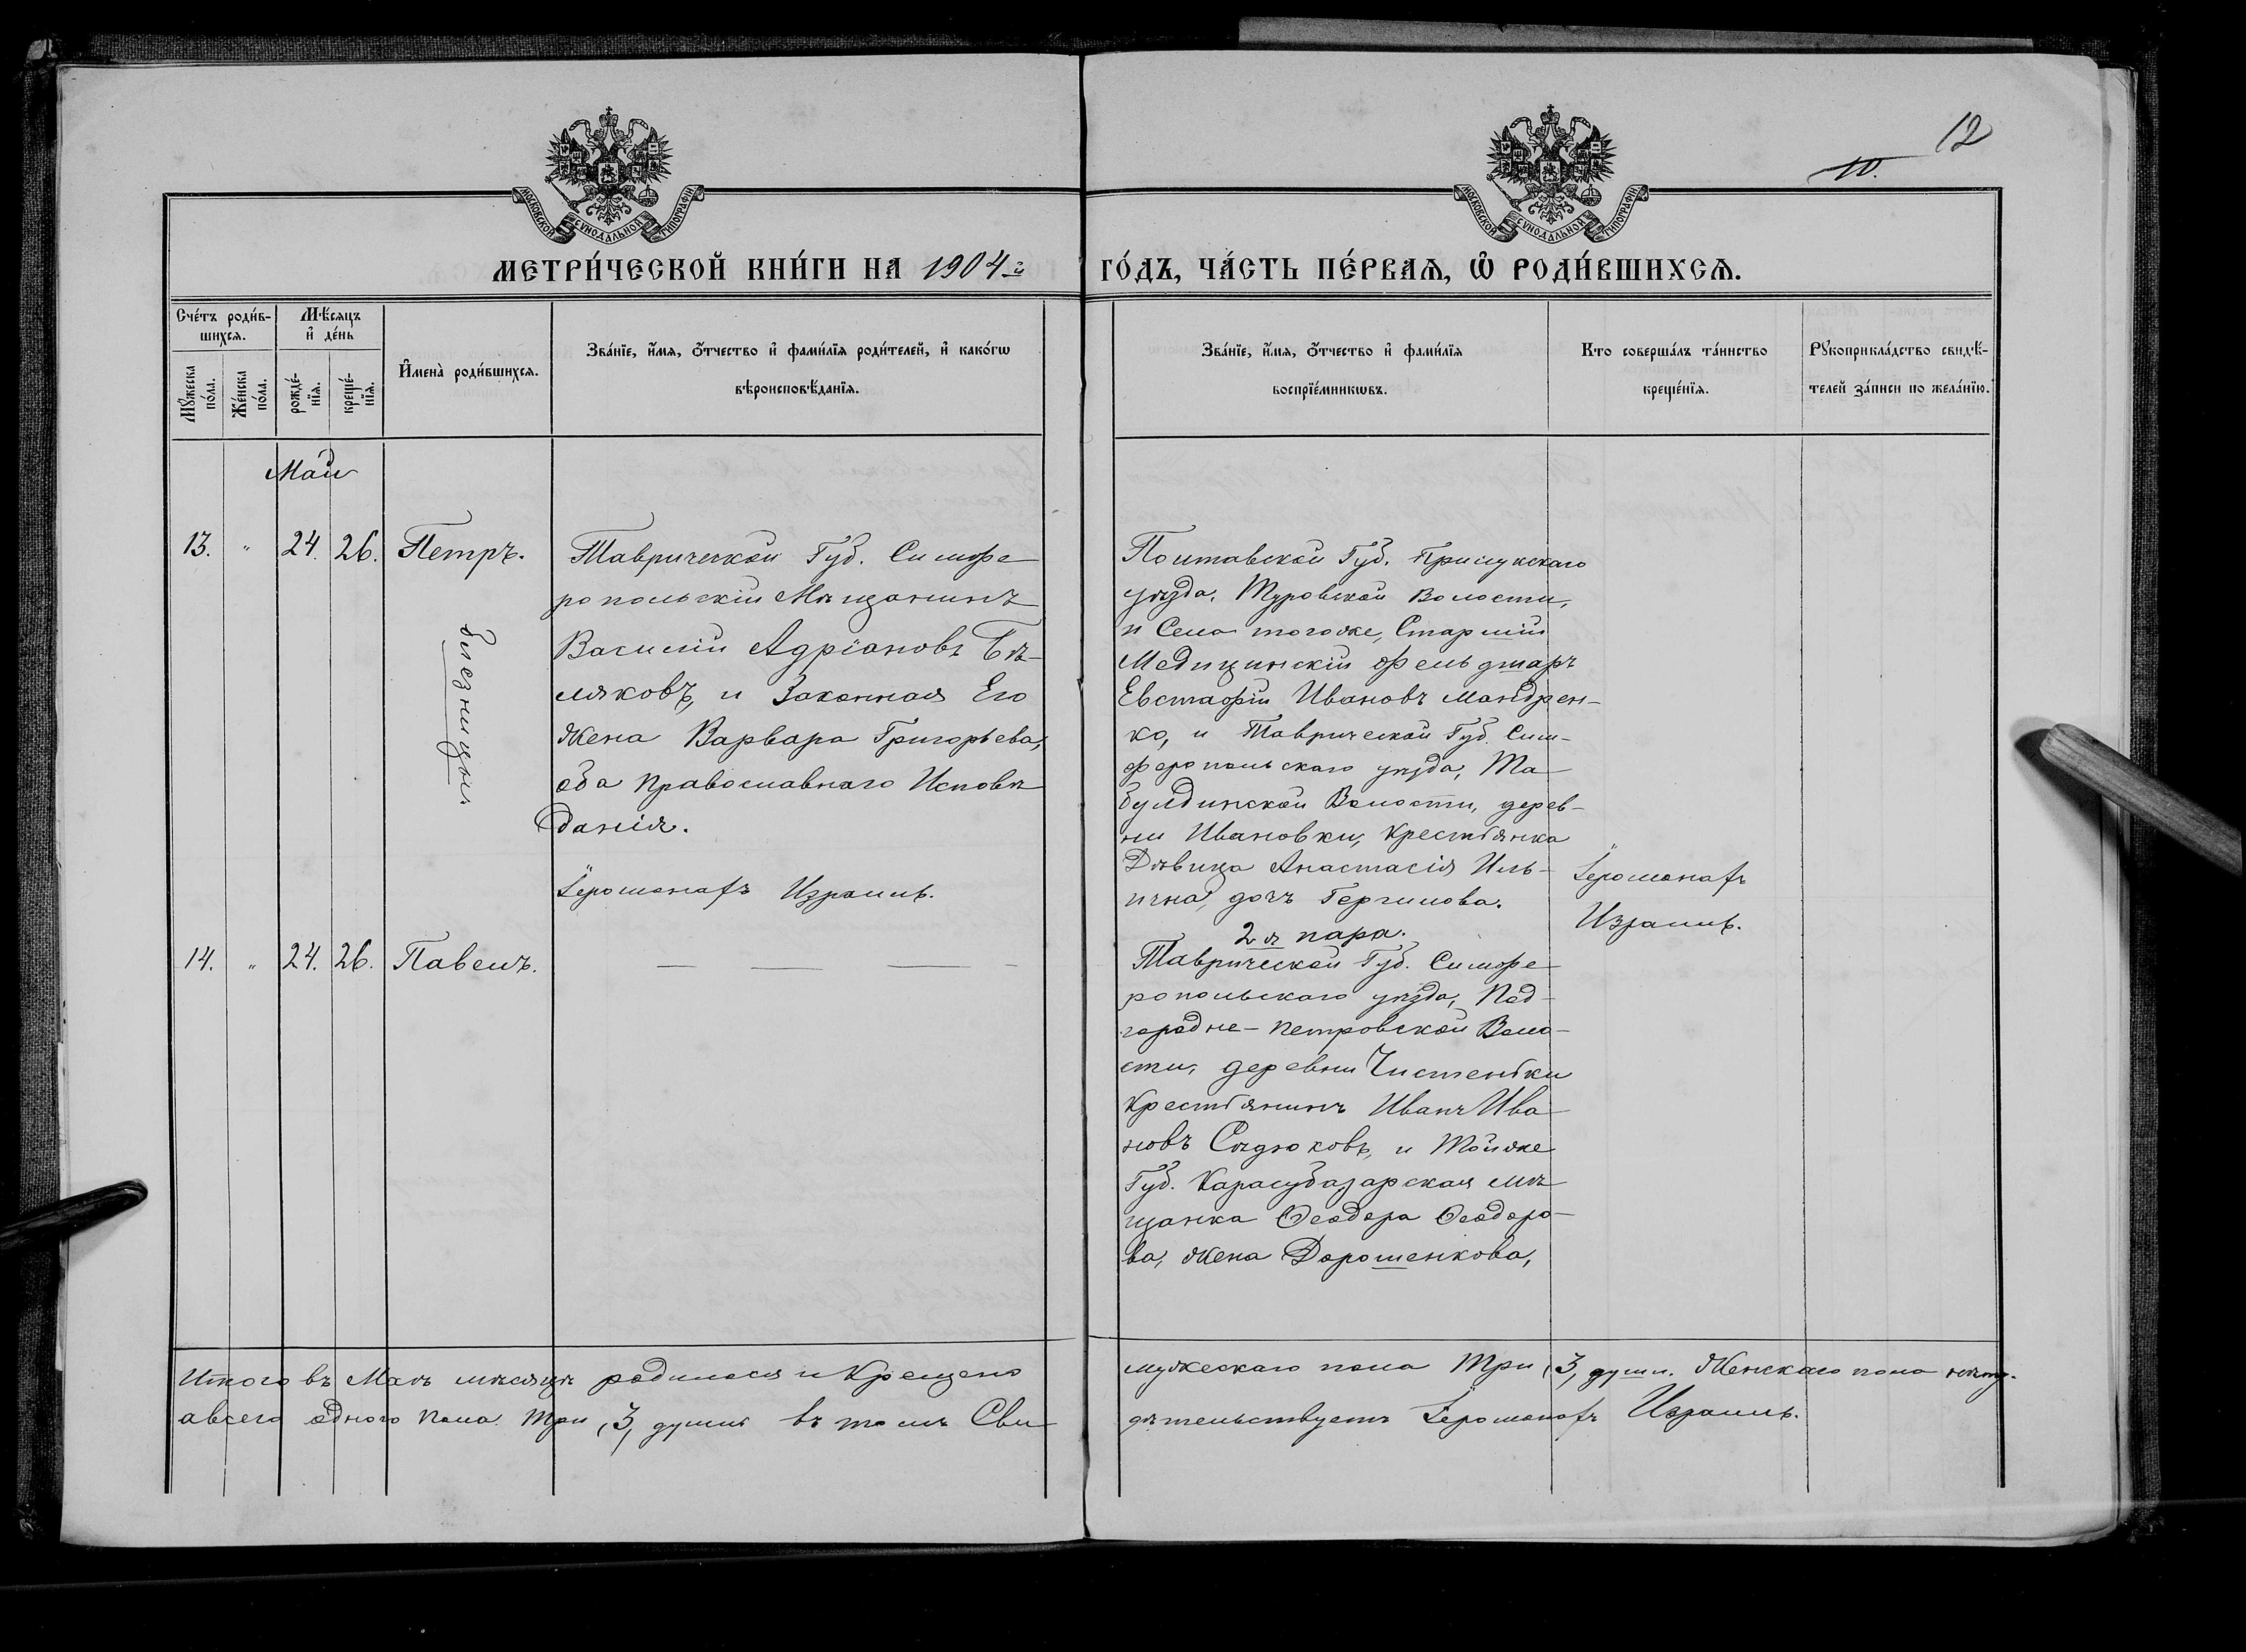 МОСКОВСКОЙ СѴНОДАЛЬНОЙ ТИПОГРАФІИ
МОСКОВСКОЙ СѴНОДАЛЬНОЙ ТИПОГРАФІИ
10.
12
МЕТРИ́ЧЕСКОЙ КНИ́ГИ НА 1904й
ГО́ДЪ, ЧА́СТЬ ПЕ́РВАѦ, Ѡ҆ РОДИ́ВШИХСѦ.
Сче́тъ роди́в-
шихсѧ.
Мꙋ́жеска
по́ла.
Же́нска
по́ла.
Мѣ́сѧцъ
и҆ де́нь
рожде́-
нїѧ.
креще́-
нїѧ.
И҆мена̀ роди́вшихсѧ.
Зва́нїе, и҆́мѧ, ѻ҆́тчество и҆ фами́лїѧ роди́телей, и҆ како́гѡ
вѣроисповѣ́данїѧ.
Зва́нїе, и҆́мѧ, ѻ҆́тчество и҆ фами́лїѧ
воспрїе́мникѡвъ.
Кто соверша́лъ та́инство
креще́нїѧ.
Рꙋкоприкла́дство свидѣ́-
телей за́писи по жела́нїю.
Май
13. " 24. 26. Петръ.
близницы
Таврической Губ. Симфе
ропольскій Мѣщанинъ
Василій Адріановъ Бѣ-
ляковъ, и Законная Его
Жена Варвара Григорьева,
оба православнаго Исповѣ
данія.
Іеромонахъ Израиль.
Полтавской Губ. Прилукскаго
уѣзда, Туровской Волости,
и Села тогоже, Старшій
Медицинскій фельдшаръ
Евстафій Ивановъ Мандрен-
ко, и Таврической Губ. Сим-
феропольскаго уѣзда, Та
булдинской Волости, дерев-
ни Ивановки, Крестьянка
Дѣвица Анастасія Иль-
ична, дочъ Гергилова.
Іеромонахъ
Израиль.
14. " 24. 26. Павелъ.
— — — -
2я пара.
Таврической Губ. Симфе
ропольскаго уѣзда, Под-
городне-Петровской Воло-
сти, деревни Чистеньки
Крестьянинъ Иванъ Ива
новъ Сѣдюковъ, и Тойже
Губ. Карасубазарская мѣ
щанка Ѳеодора Ѳеодоро-
ва, жена Дорошенкова,
Итого въ Маѣ мѣсяцѣ родилося и Крещено
мужескаго пола Три (3) души. Женскаго пола нѣту.
авсего одного пола Три (3) души въ томъ Сви
дѣтельствуетъ Іеромонахъ Израиль.